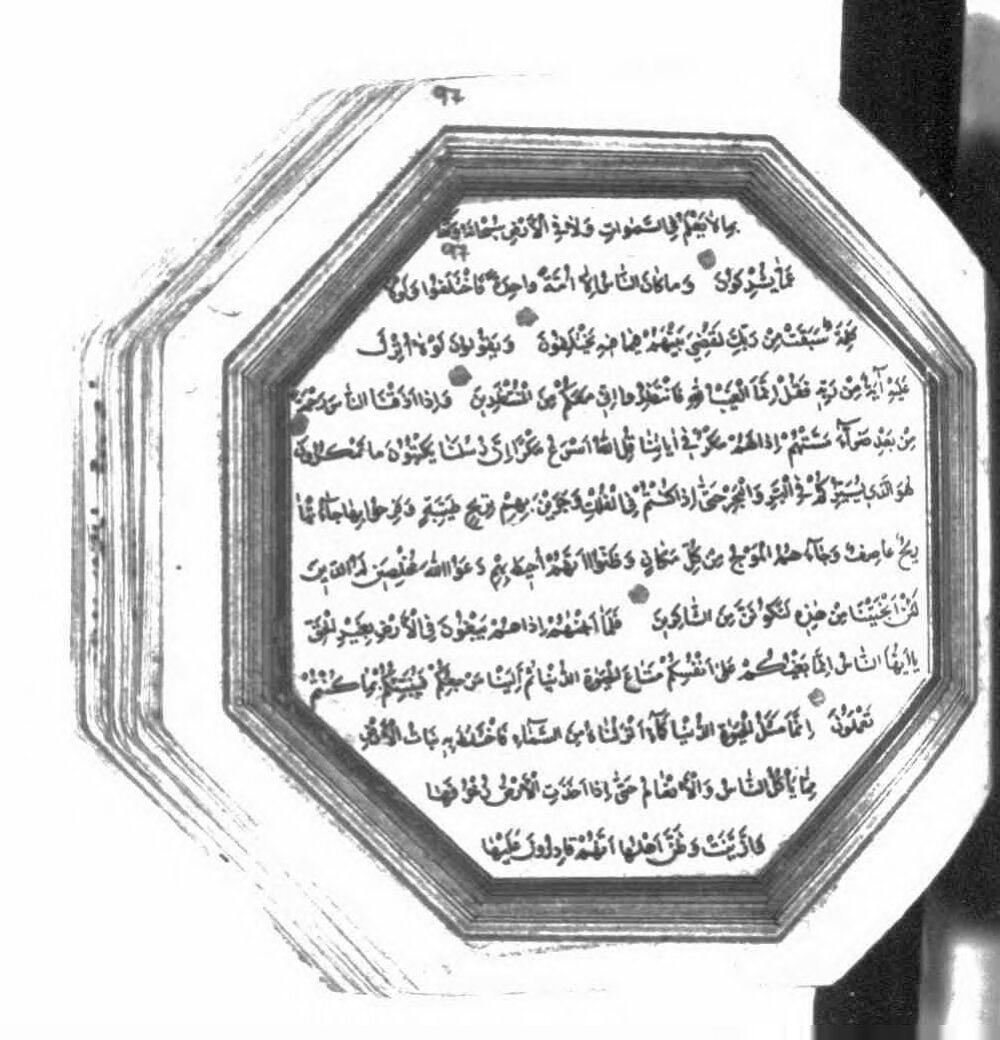 97
بِمَا لَا يَعْلَمُ فِي السَّمٰوَاتِ وَلَا فِي الْأَرْضِ سُبْحَانَهُ وَتَعَا
97
عَمَّا يُشْرِكُونَ وَمَا كَانَ النَّاسُ إِلَّا أُمَّةً وَاحِدَةً فَاخْتَلَفُوا وَلَوْلَا
كَلِمَةٌ سَبَقَتْ مِنْ رَبِّكَ لَقُضِيَ بَيْنَهُمْ فِيمَا فِيهِ يَخْتَلِفُونَ وَيَقُولُونَ لَوْلَا أُنْزِلَ
عَلَيْهِ آيَةٌ مِنْ رَبِّهِ فَقُلْ إِنَّمَا الْغَيْبُ لِلّٰهِ فَانْتَظِرُوا إِنِّي مَعَكُمْ مِنَ الْمُنْتَظِرِينَ وَإِذَا أَذَقْنَا النَّاسَ رَحْمَةً
مِنْ بَعْدِ ضَرَّآءَ مَسَّتْهُمْ إِذَا لَهُمْ مَكْرٌ فِي اٰيَاتِنَا قُلِ اللّٰهُ أَسْرَعُ مَكْرًا إِنَّ رُسُلَنَا يَكْتُبُونَ مَا تَمْكُرُونَ
هُوَ الَّذِي يُسَيِّرُكُمْ فِي الْبَرِّ وَالْبَحْرِ حَتَّى إِذَا كُنْتُمْ فِي الْفُلْكِ وَجَرَيْنَ بِهِمْ بِرِيحٍ طَيِّبَةٍ وَفَرِحُوا بِهَا جَآءَتْهَا
رِيحٌ عَاصِفٌ وَجَآءَهُمُ الْمَوْجُ مِنْ كُلِّ مَكَانٍ وَظَنُّوا أَنَّهُمْ أُحِيطَ بِهِمْ دَعَوُا اللّٰهَ مُخْلِصِينَ لَهُ الدِّينَ
لَئِنْ أَنْجَيْتَنَا مِنْ هٰذِهِ لَنَكُونَنَّ مِنَ الشَّاكِرِينَ فَلَمَّا أَنْجٰهُمْ إِذَا هُمْ يَبْغُونَ فِي الْأَرْضِ بِغَيْرِ الْحَقِّ
يَا أَيُّهَا النَّاسُ إِنَّمَا بَغْيُكُمْ عَلَى أَنْفُسِكُمْ مَتَاعَ الْحَيٰوةِ الدُّنْيَا ثُمَّ إِلَيْنَا مَرْجِعُكُمْ فَنُنَبِّئُكُمْ بِمَا كُنْتُمْ
تَعْمَلُونَ إِنَّمَا مَثَلُ الْحَيٰوةِ الدُّنْيَا كَمَآءٍ أَنْزَلْنَاهُ مِنَ السَّمَآءِ فَاخْتَلَطَ بِهِ نَبَاتُ الْأَرْضِ
مِمَّا يَأْكُلُ النَّاسُ وَالْأَنْعَامُ حَتَّى إِذَا أَخَذَتِ الْأَرْضُ زُخْرُفَهَا
وَازَّيَّنَتْ وَظَنَّ أَهْلُهَا أَنَّهُمْ قَادِرُونَ عَلَيْهَا